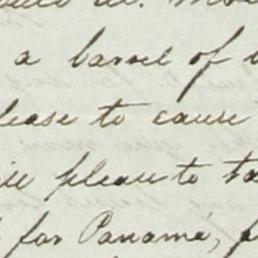 a barrel of
lease to cause
please to ta
for Panama, f